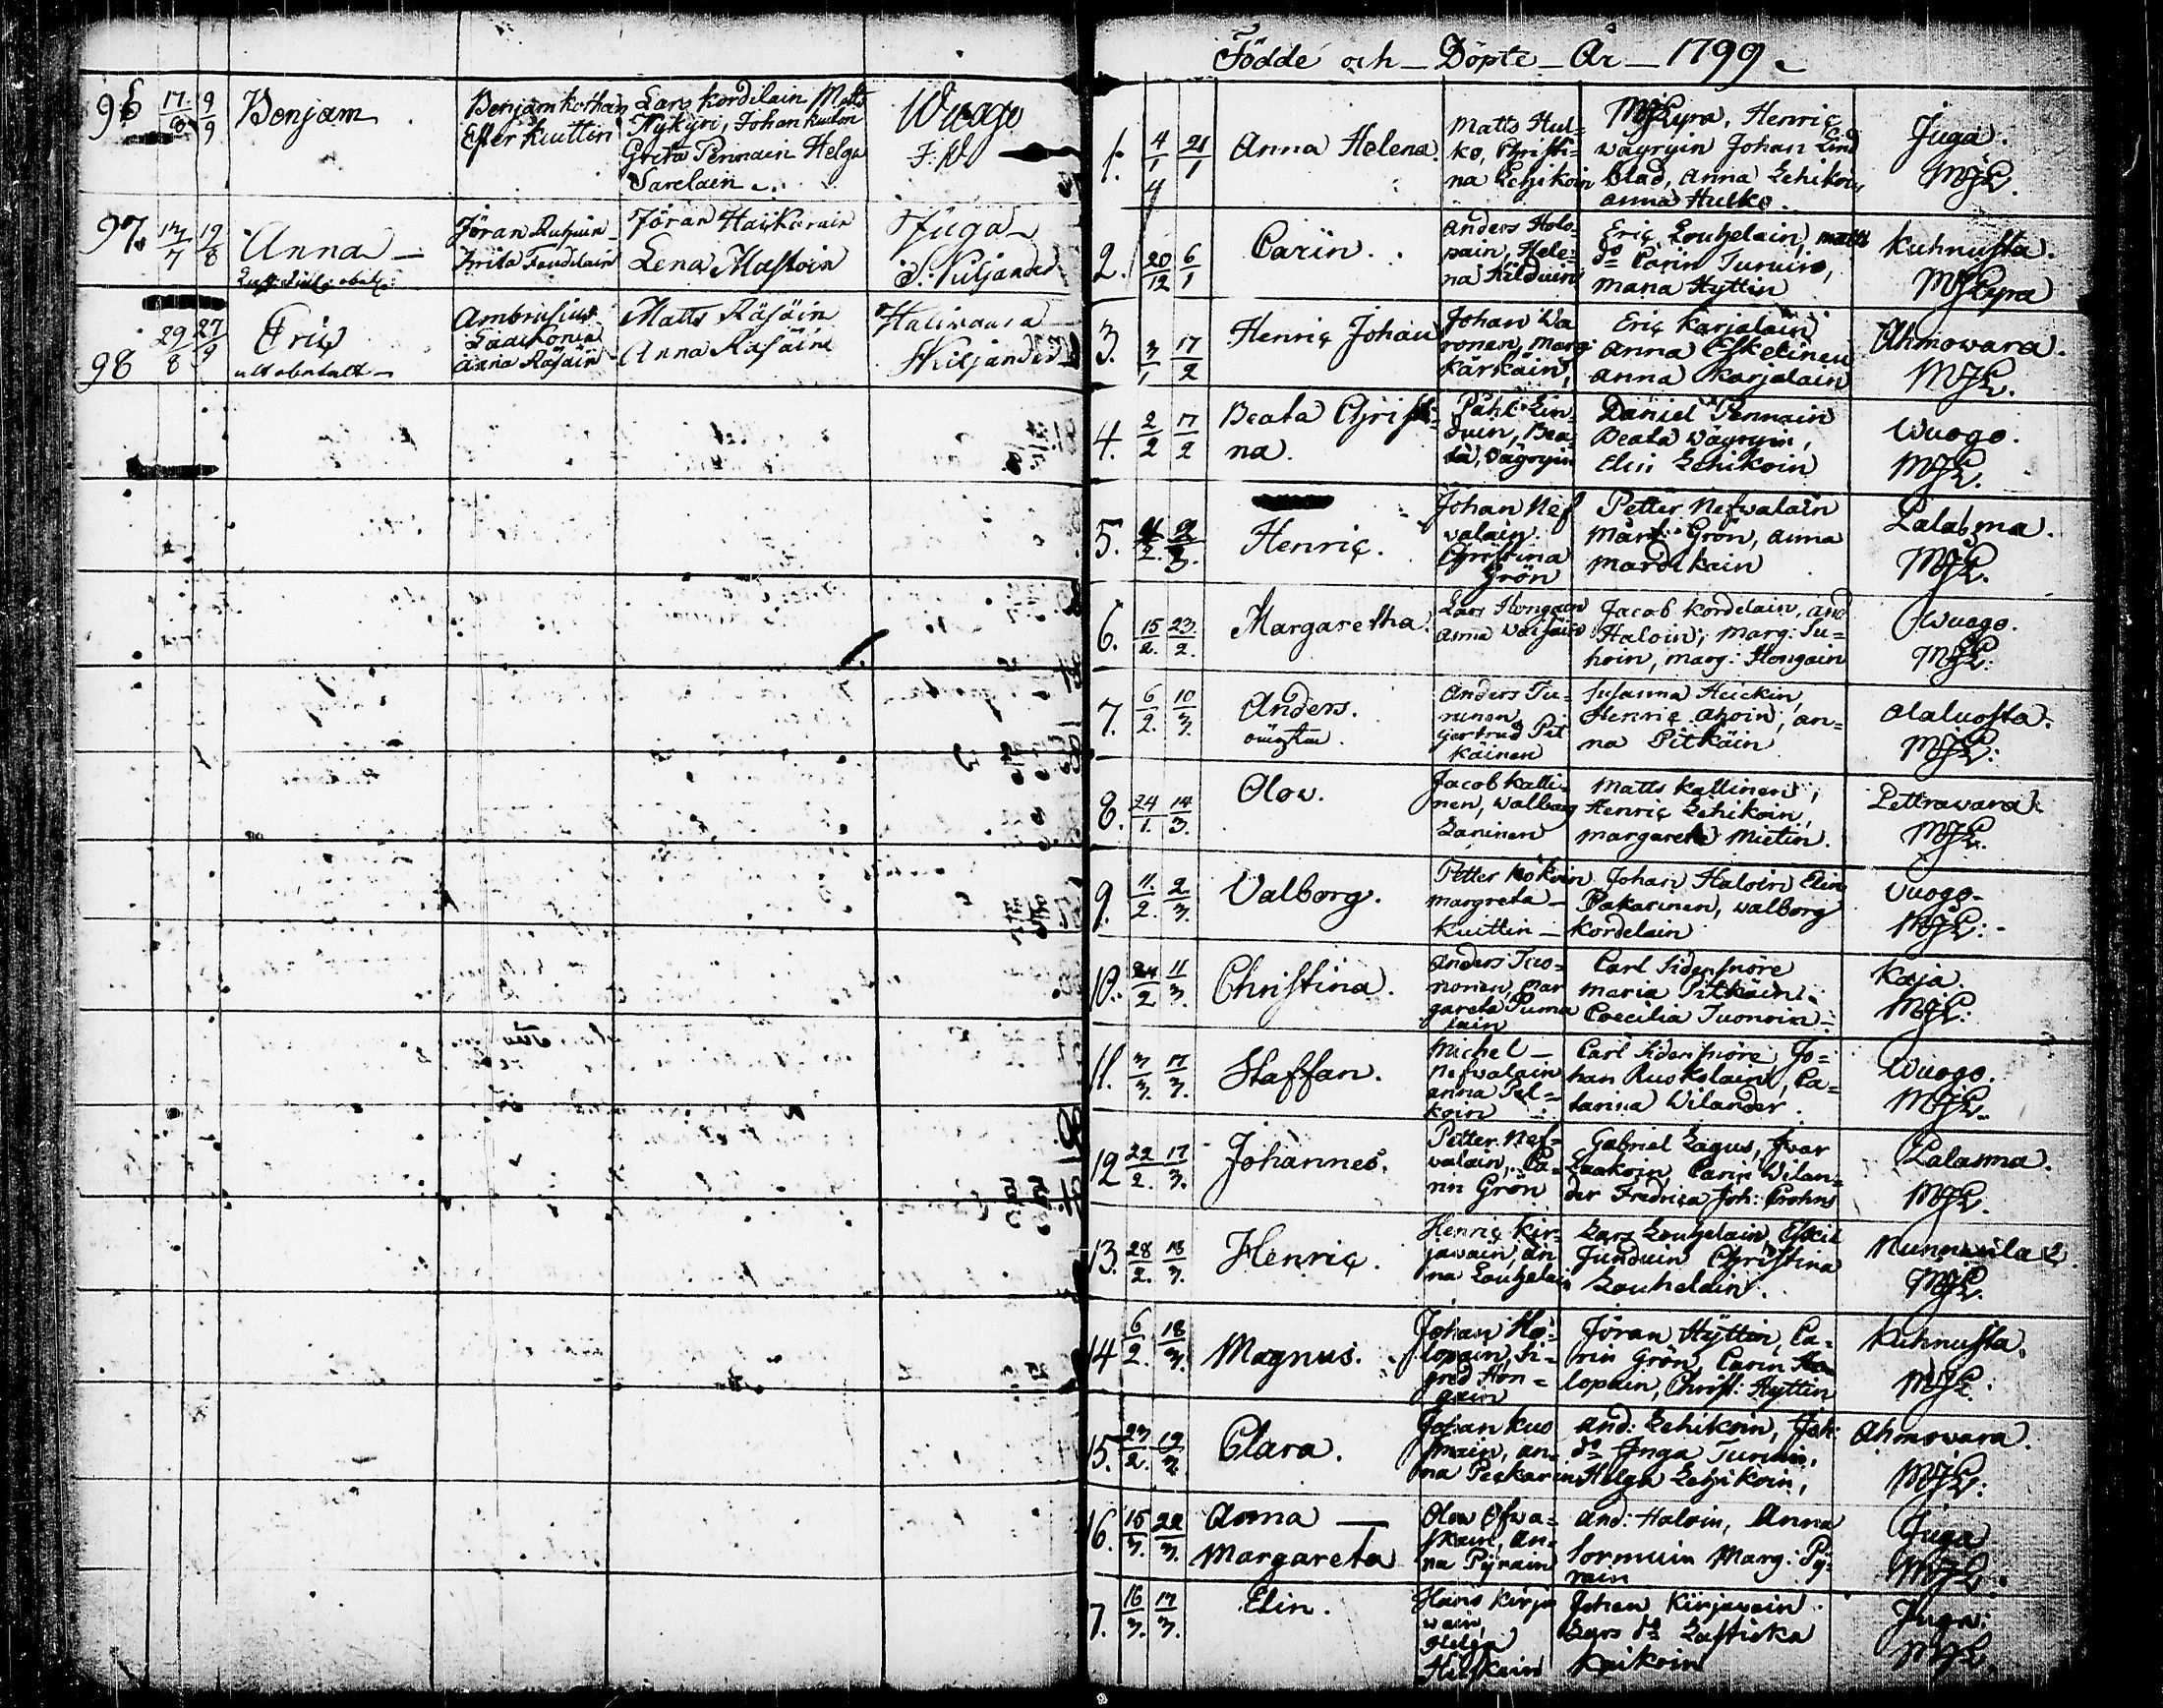 96 17/8 9/9 Benjam
Benjam Korhain
Ester Kuittin
Lars Kordilain Matts
Nykyri, Johan Kuitton
Greta Pennain Helga
Sarelain
Wuogo
97. 17/7 19/8 Anna
Jöran
Brita
Jöran Haikarain
Lena Mustoin
Juga
S. Viljander
98 29/8 27/9 Eric
Ambrusius
Anna Räsäin
Matts Räsäin
Anna Räsäin
Viljander
Födde och Döpte År 1799.
1. 4/1 21/1 Anna Helena.
Matts Hul=
ko, Christi=
na Lehikoin
MJLyra, Henric
Wäyryin Johan Lind
blad, Anna Lehikoin
Anna Hulko.
Juga.
MJL.
2. 20/12 6/1 Carin.
Anders Holo
pain, Hele=
na
Eric Louhelain, Matts
do Carin Turuin,
Maria Hyttin
Kuhnusta.
MJLyra
3. 3/1 17/2 Henric Johan
Johan Wa
ronen, Marg:
Kärkäin,
Eric Karjalain
Anna Eskelinen
Anna Karjalain
Ahmowara.
MJL.
4. 2/2 17/2 Beata Christi=
na.
Påhl Lin=
duin, Bea=
ta, Wäyryin
Daniel Pennain
Beata Wäyryin,
Elin Lehikoin
Wuogo.
MJL.
5. Henric.
Johan Nef
walain.
Christina
Grön
Petter Nefwalain
Märt: Grön, Anna
Mardikain
Lalasma.
MJL.
6. 15/2. 23/2. Margaretha.
Lars Hongain
Anna
Jacob Kordelain, And
Haloin, Marg: Tu=
hoin, Marg: Hongain
Wuogo.
MJL:
7. 6/2. 10/3. Anders.
Anders Tu=
runen,
Gertrud Pit
käinen
Susanna Heickin,
Henric Ahoin, An=
na Pitkäin
Alaluosta.
MJL:
8. 24/1. 14/3. Olow.
Jacob Kalli=
nen, Walborg
Laninen
Matts Kallinen,
Henric Lehikoin,
Margareta Mietin.
Pettrawara.
MJL.
9. 11./2. 2/3. Valborg.
Petter Kokoin
Margreta
Kuittin
Johan Haloin Elin
Pakarinen, Walborg
Kordelain
Vuogo.
MJL:
10. 24/2 11/3. Christina.
Anders Tuo=
nonen, Mar
gareta Puma
lain
Carl Sidensnöre
Maria Pitkäin
Coecilia Tuonoin
Kaja.
MJL:
11. 3/3. 17/3. Staffan.
Michel
Nefwalain
Anna Pel=
koin
Carl Sidensnöre, Jo=
han Ruokolain, Ca=
tarina Wilander.
Wuogo.
MJL.
12 22/2. 17/3. Johannes.
Petter Nef=
walain, Ca=
rin Grön
Gabriel Lagus, Ivar
Laakoin, Carin Wilan=
der Fredrica Joh: Crohns
Lalasma.
MJL.
13. 28/2. 18/3. Henric.
Henric Kir=
jawain, An
na Louhelain
Lars Louhelain, Eskil
Junduin Christina
Louhelain.
MJL.
14 6/2. 18/3. Magnus.
Johan Ho=
lopain, Si=
grid Hon=
gain
Jöran Hyttin, Ca=
rin Grön, Carin Ho
lopain, Christ: Hyttin
Kuhnusta.
MJL.
15. 23/2. 19/3. Clara.
Johan Kuo
smain, An=
na Peskarin
And: Lehikoin, Joh:
do Inga Turuin,
Helga Lehikoin,
Ahmowara.
MJL:
16. 15/3. 22/3. Anna
Margareta
Olow Ofwa=
skain, An=
na Pyrain
And: Haloin, Anna
Sormuin Marg: Py=
rain
Juga
MJL.
7. 16/3. 17/3. Elin.
Hans Kirja
wain,
Helga
Johan Kirjawain
Lars do
Juga:
MJL.